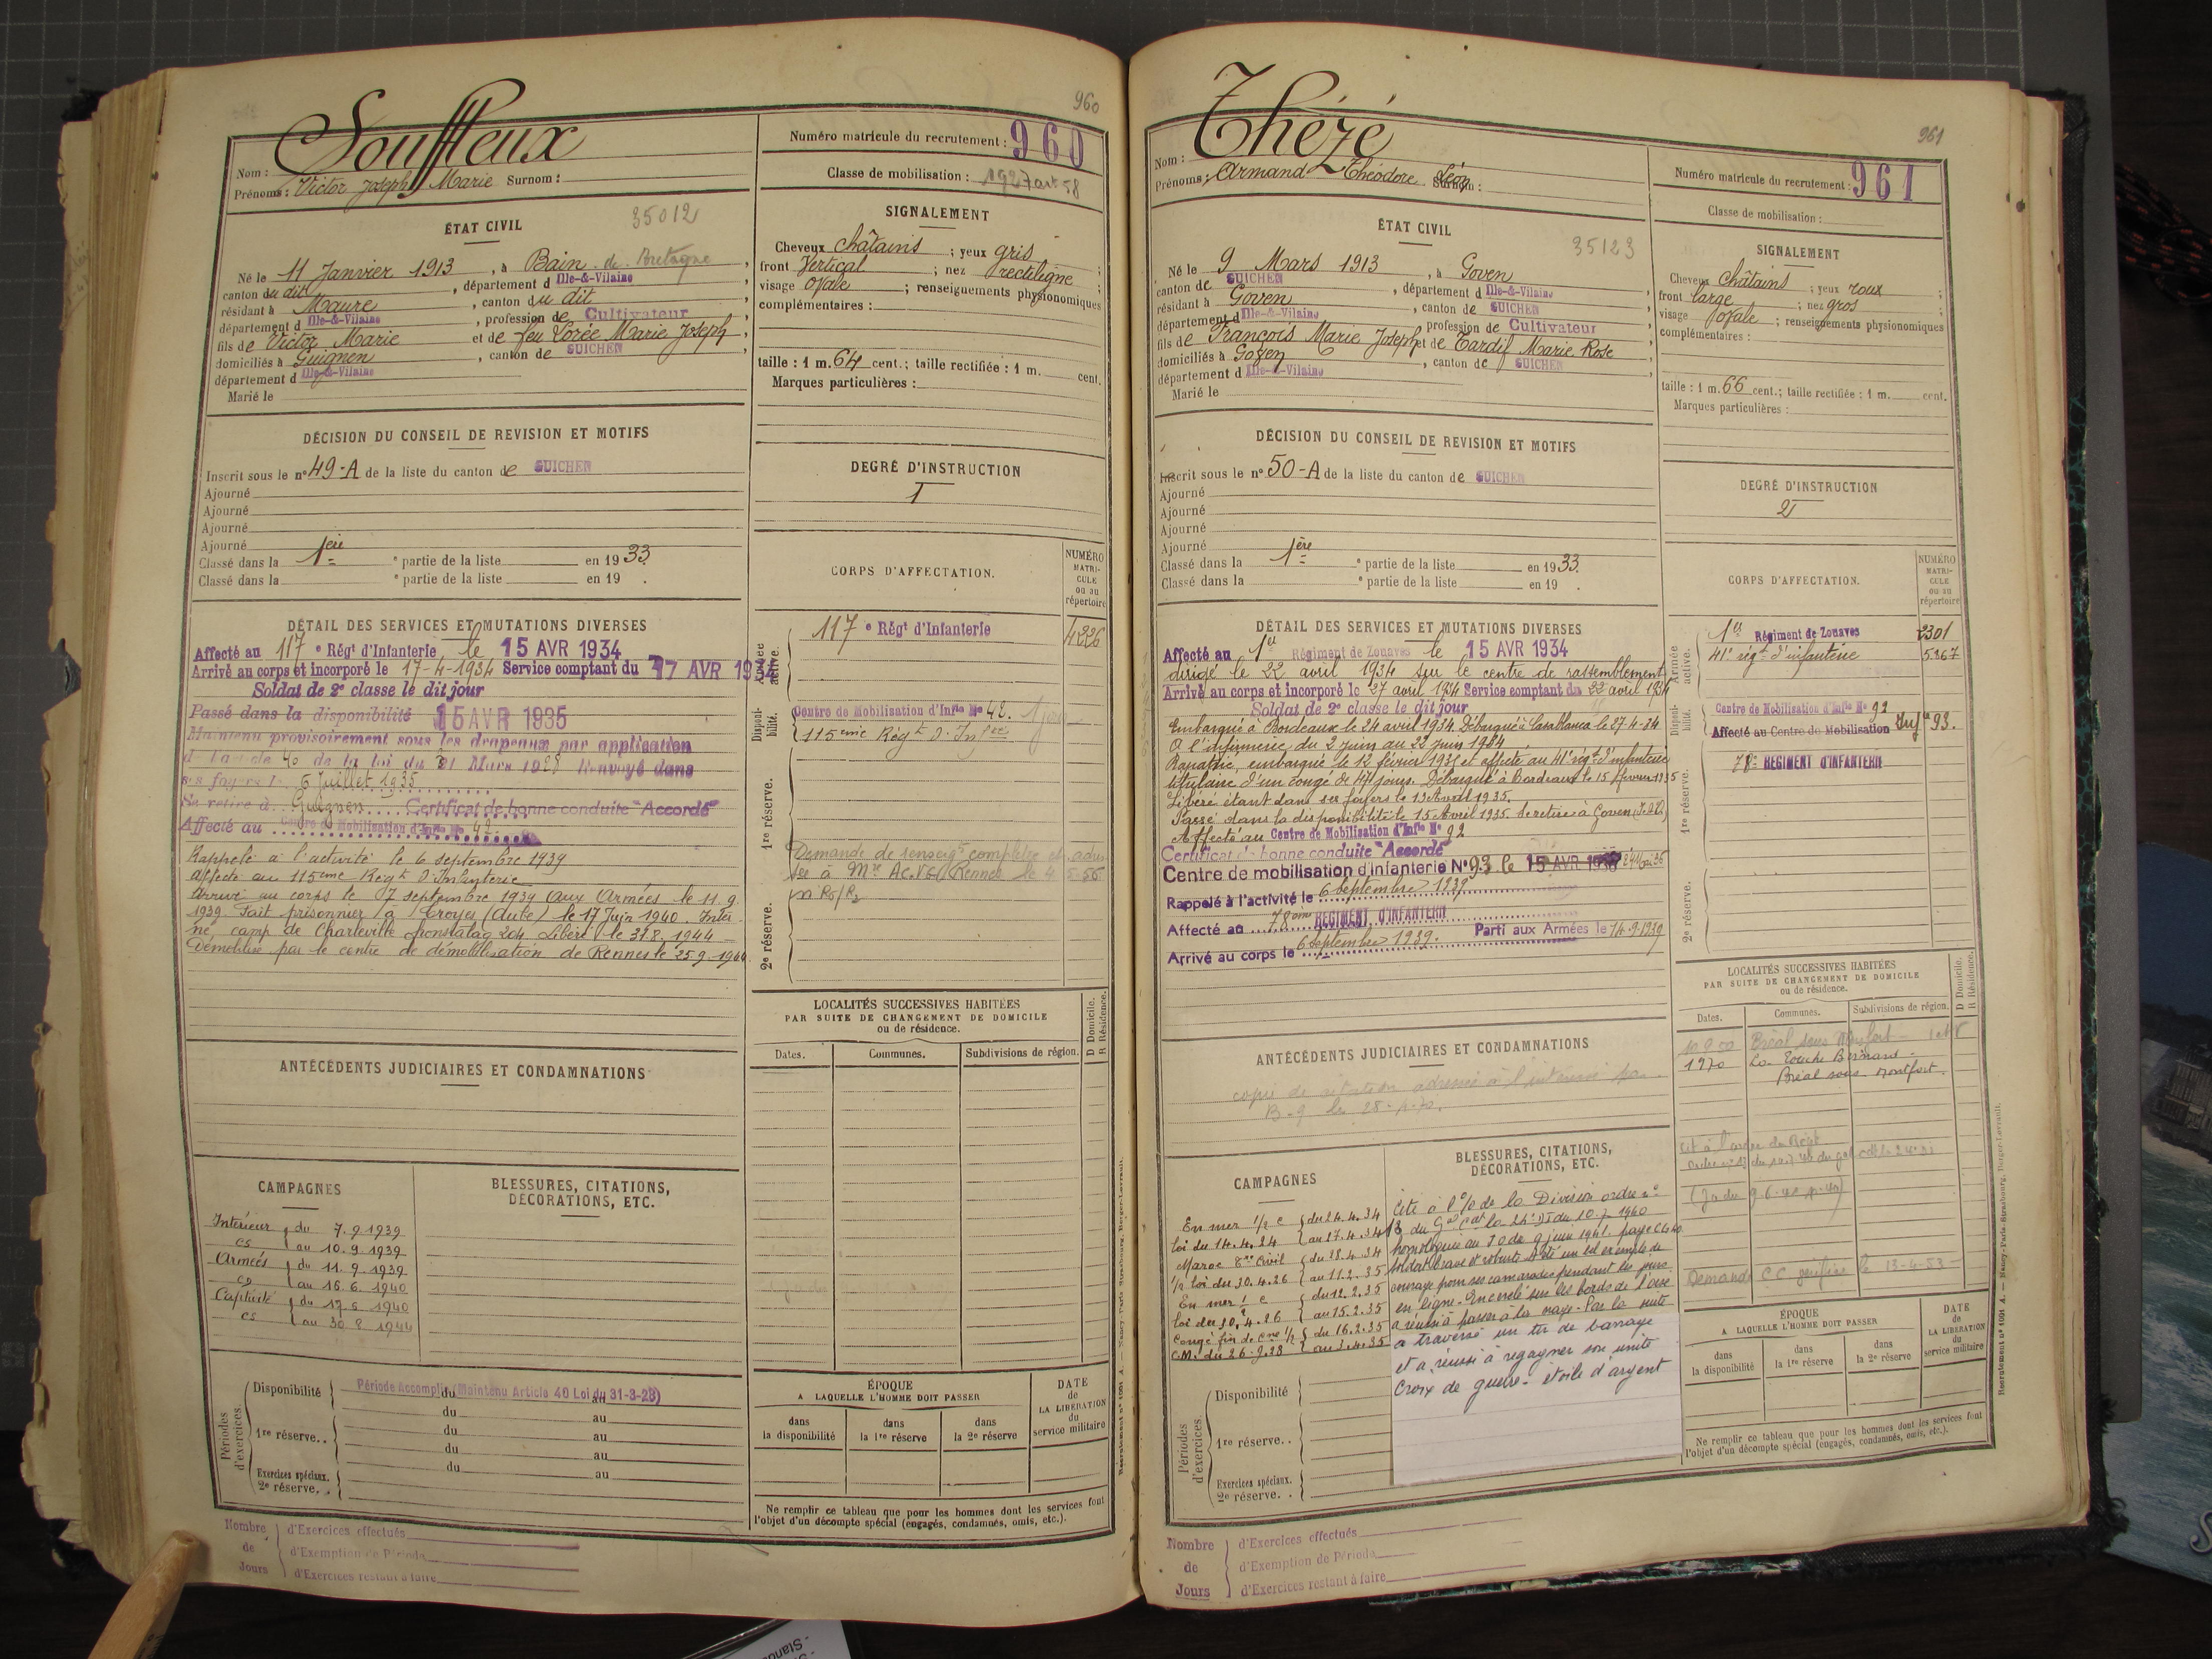 960
Souffleux
Nom :
Prénoms : Victor Joseph Marie Surnom :
Numéro matricule du recrutement : 960
Classe de mobilisation : 1927 art 58
ÉTAT CIVIL
35012
Né le 11 Janvier 1913, à Bain de Bretagne,
canton du dit, département d Ille-&-Vilaine
résidant à Maure, canton du dit,
département d Ille-&-Vilaine, profession de Cultivateur
fils de Victor Marie et de feu Lorée Marie Joseph,
domiciliés à Guignen, canton de GUICHEN,
département d Ille-&-Vilaine
Marié le
SIGNALEMENT
Cheveux châtains ; yeux gris ;
front Vertical ; nez rectiligne ;
visage Ovale ; renseignements physionomiques
complémentaires :
taille : 1 m. 64 cent.; taille rectifiée : 1 m. cent.
Marques particulières :
DÉCISION DU CONSEIL DE REVISION ET MOTIFS
Inscrit sous le n° 49-A de la liste du canton de GUICHEN
Ajourné
Ajourné
Ajourné
Ajourné
Classé dans la 1ère e partie de la liste en 1933.
Classé dans la e partie de la liste en 19 .
DEGRÉ D'INSTRUCTION
I
CORPS D'AFFECTATION.
NUMÉRO MATRI-CULE ou au répertoire
DÉTAIL DES SERVICES ET MUTATIONS DIVERSES
Affecté au 117 e Régt d'Infanterie le 15 AVR 1934
Arrivé au corps et incorporé le 17-4-1934 Service comptant du 17 AVR 1934
Soldat de 2e classe le dit jour
Passé dans la disponibilité 15 AVR 1935
Maintenu provisoirement sous les drapeaux par application
de l'art de 40 de la loi du 31 Mars 1928 Renvoyé dans
ses foyers le 6 Juillet 1935
Se retire à Guignen Certificat de bonne conduite "Accordé"
Affecté au Centre de Mobilisation d'Infie No 42.
Rappelé à l'activité le 6 septembre 1939
affecté au 115ème Régt d'Infanterie
arrivé au corps le 7 septembre 1939 aux Armées le 11.9.
1939 Fait prisonnier à Troyes (Aube) le 17 Juin 1940. Inter
né, camp de Charleville fronstalag 204 Libéré le 31.8.1944
Démobilisé par le centre de démobilisation de Rennes le 25.9.1944
Armée active.
117 e Régt d'Infanterie 4226
Disponibilité.
Centre de Mobilisation d'Infie No 42.
115ème Régt d'Infrie
1re réserve.
Demande de renseigts complétée et adres
sée à Mr Ac.VG Rennes le 4-5-55
2e réserve.
LOCALITÉS SUCCESSIVES HABITÉES
PAR SUITE DE CHANGEMENT DE DOMICILE
ou de résidence.
D Domicile. R Résidence.
Dates. Communes. Subdivisions de région.
ANTÉCÉDENTS JUDICIAIRES ET CONDAMNATIONS
CAMPAGNES
BLESSURES, CITATIONS,
DÉCORATIONS, ETC.
Intérieur { du 7.9.1939
cs { au 10.9.1939
Armées { du 11.9.1939
cd { au 16.6.1940
Captivité { du 17.6.1940
cs { au 30.8.1944
Périodes d'exercices.
Disponibilité Période Accomplie (Maintenu Article 40 Loi du 31-3-28)
1re réserve. . du au
du au
du au
du au
Exercices spéciaux.
2e réserve. .
ÉPOQUE
A LAQUELLE L'HOMME DOIT PASSER
dans la disponibilité
dans la 1re réserve
dans la 2e réserve
DATE de LA LIBÉRATION du service militaire
Ne remplir ce tableau que pour les hommes dont les services font
l'objet d'un décompte spécial (engagés, condamnés, omis, etc.).
Nombre de Jours
d'Exercices effectués
d'Exemption de Période
d'Exercices restant à faire
961
Thézé
Nom :
Prénoms : Armand Théodore Léon Surnom :
Numéro matricule du recrutement : 961
Classe de mobilisation :
ÉTAT CIVIL
35123
Né le 9 Mars 1913, à Goven
canton de GUICHEN, département d Ille-&-Vilaine
résidant à Goven, canton de GUICHEN
département d Ille-&-Vilaine, profession de Cultivateur
fils de François Marie Joseph et de Tardif Marie Rose
domiciliés à Goven, canton de GUICHEN,
département d Ille-&-Vilaine
Marié le
SIGNALEMENT
Cheveux châtains ; yeux roux ;
front large ; nez gros ;
visage Ovale ; renseignements physionomiques
complémentaires :
taille : 1 m. 66 cent.; taille rectifiée : 1 m. cent.
Marques particulières :
DÉCISION DU CONSEIL DE REVISION ET MOTIFS
Inscrit sous le n° 50-A de la liste du canton de GUICHEN
Ajourné
Ajourné
Ajourné
Ajourné
Classé dans la 1ère e partie de la liste en 1933.
Classé dans la e partie de la liste en 19 .
DEGRÉ D'INSTRUCTION
2
CORPS D'AFFECTATION.
NUMÉRO MATRI-CULE ou au répertoire
DÉTAIL DES SERVICES ET MUTATIONS DIVERSES
Affecté au 1er Régiment de Zouaves le 15 AVR 1934
dirigé le 22 avril 1934 sur le centre de rassemblement
Arrivé au corps et incorporé le 27 avril 1934 Service comptant du 22 avril 1934
Soldat de 2e classe le dit jour
Embarqué à Bordeaux le 24 avril 1934. Débarqué à Casablanca le 27-4-34
A l'infirmerie du 2 juin au 22 juin 1934
Rapatrié, embarqué le 12 février 1935 et affecté au 41e régt d'infanterie
titulaire d'un congé de 47 jours. Débarqué à Bordeaux le 15 février 1935
Libéré étant dans ses foyers le 13 Avril 1935.
Passé dans la disponibilité le 15 Avril 1935. Se retire à Goven (I.&V.)
Affecté au Centre de Mobilisation d'Infie No 92
Certificat de bonne conduite "Accordé"
Centre de mobilisation d'infanterie N° 93 le 15 AVR 1936
Rappelé à l'activité le 6 Septembre 1939
Affecté au 78ème REGIMENT D'INFANTERIE
Arrivé au corps le 6 Septembre 1939. Parti aux Armées le 14.9.1939
Armée active.
1er Régiment de Zouaves 2301
41e régt d'infanterie 5267
Disponibilité.
Centre de Mobilisation d'Infie No 92
Affecté au Centre de Mobilisation Infie 93.
78e REGIMENT D'INFANTERIE
1re réserve.
2e réserve.
LOCALITÉS SUCCESSIVES HABITÉES
PAR SUITE DE CHANGEMENT DE DOMICILE
ou de résidence.
D Domicile. R Résidence.
Dates. Communes. Subdivisions de région.
Bréal sous Montfort
1970 La Touche Bernard
Bréal sous Montfort.
ANTÉCÉDENTS JUDICIAIRES ET CONDAMNATIONS
copie de citation adressée à l'intéressé
cité à l'ordre du Régt
Demande CC le 13-4-53
CAMPAGNES
En mer 1/2 c { du 24.4.34
loi du 14.4.24 { au 27.4.34
Maroc Civil { du 28.4.34
1/2 loi du 30.4.26 { au 11.2.35
En mer 1/2 c { du 12.2.35
loi du 30.4.26 { au 15.2.35
Congé fin de Cne 1/2 { du 16.2.35
C.M. du 26.9.28 { au 3.4.35
BLESSURES, CITATIONS,
DÉCORATIONS, ETC.
Cité à l'O/ de la Division ordre n°
13 du Gal Cdt la 24e DI du 10.7 1940
homologuée au JO de 9 juin 1941. page
soldat brave et robuste a été un bel exemple de
courage pour ses camarades pendant les jours
en ligne. Encerclé sur les bords de l'Oise
a réussi à passer à la nage. Par la suite
a traversé un tir de barrage
et a réussi à regagner son unité
Croix de guerre. étoile d'argent
Périodes d'exercices.
Disponibilité
1re réserve. .
Exercices spéciaux.
2e réserve. .
ÉPOQUE
A LAQUELLE L'HOMME DOIT PASSER
dans la disponibilité
dans la 1re réserve
dans la 2e réserve
DATE de LA LIBÉRATION du service militaire
Ne remplir ce tableau que pour les hommes dont les services font
l'objet d'un décompte spécial (engagés, condamnés, omis, etc.).
Nombre de Jours
d'Exercices effectués
d'Exemption de Période
d'Exercices restant à faire
Recrutement n° 1001 A. — Nancy-Paris-Strasbourg, Berger-Levrault.